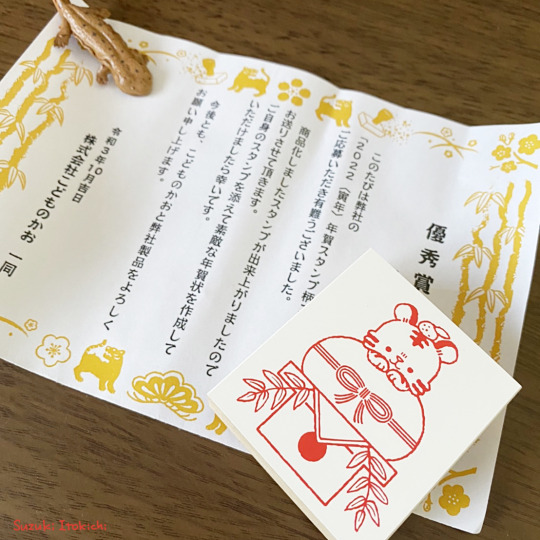 優秀賞
このたびは弊社の
「2022（寅年）年賀スタンプ柄
ご応募いただき有難うございました。
商品化しましたスタンプが出来上がりましたので
お送りさせて頂きます。
ご自身のスタンプを添えて素敵な年賀状を作成して
いただけましたら幸いです。
今後とも、こどものかおと弊社製品をよろしく
お願い申し上げます。
令和3年10月吉日
株式会社こどものかお 一同
Suzuki Itokichi